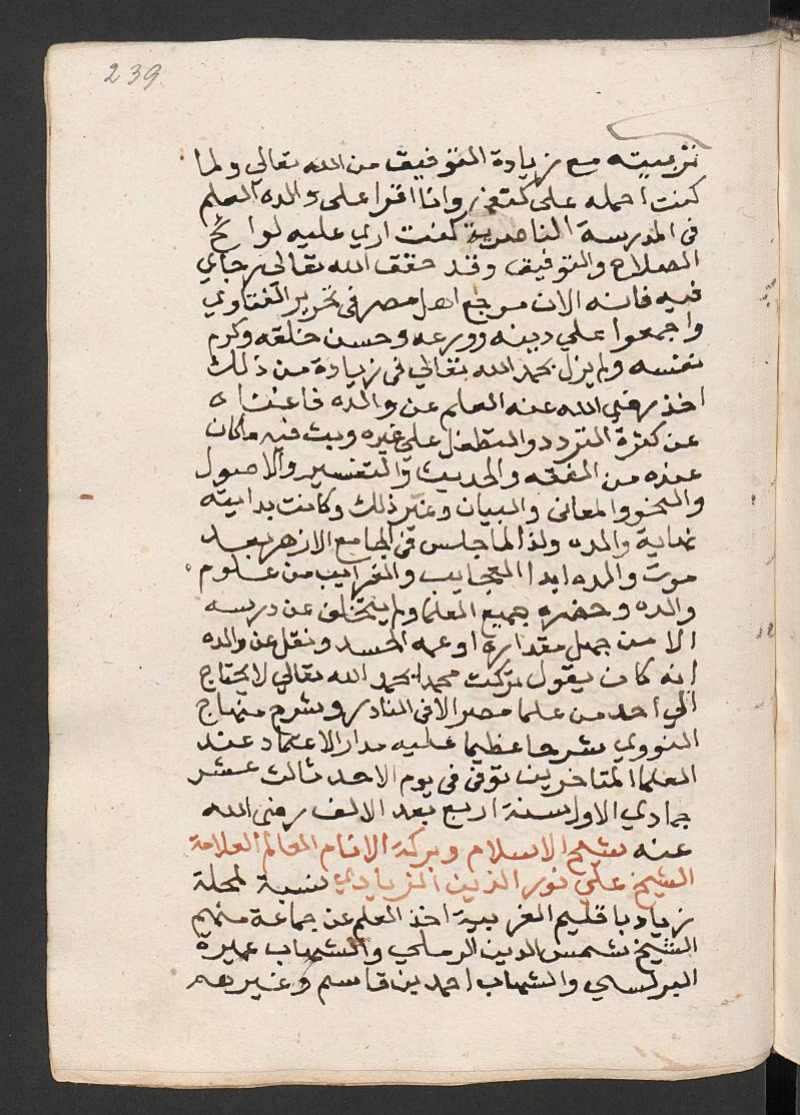 239
تربيته مع زيادة التوفيق من الله تعالي ولما
كنت احمله على كتفي وانا اقرا على والده العلم
في المدرسة الناصرية كنت اري عليه لوائح
الصلاح والتوفيق وقد حقق الله تعالى رجاي
فيه فانه الان مرجع اهل مصر في تحرير الفتاوي
واجمعوا علي دينه وورعه وحسن خلقه وكرم
نفسه ولم يزل بحمد الله تعالي في زيادة من ذلك
اخذ رضي الله عنه العلم عن والده فاغناه
عن كثرة التردد والتطفل علي غيره وبث فيه ماكان
عنده من الفقه والحديث والتفسير والاصول
والنحو والمعاني والبيان وغير ذلك وكانت بدايته
نهاية والده ولذا لما جلس في الجامع الازهر بعد
موت والده ابدا العجايب والغرايب من علوم
والده وحضره جميع العلما ولم يتخلف عن درسه
الا من جهل مقداره او عمه الحسد ونقل عن والده
انه كان يقول تركت محمدا بحمد الله تعالي لا يحتاج
الي احد من علما مصر الا في النادر وشرح منهاج
النووي شرحا عظيما عليه مدار الاعتماد عند
العلما المتاخرين توفي في يوم الاحد ثالث عشر
جمادي الاول سنة اربع بعد الالف رضي الله
عنه شيخ الاسلام وبركة الانام العالم العلامة
الشيخ علي نور الدين الزيادي نسبة لمحلة
زياد باقليم الغربية اخذ العلم عن جماعة منهم
الشيخ شمس الدين الرملي والشهاب عميرة
البرلسي والشهاب احمد بن قاسم وغيرهم